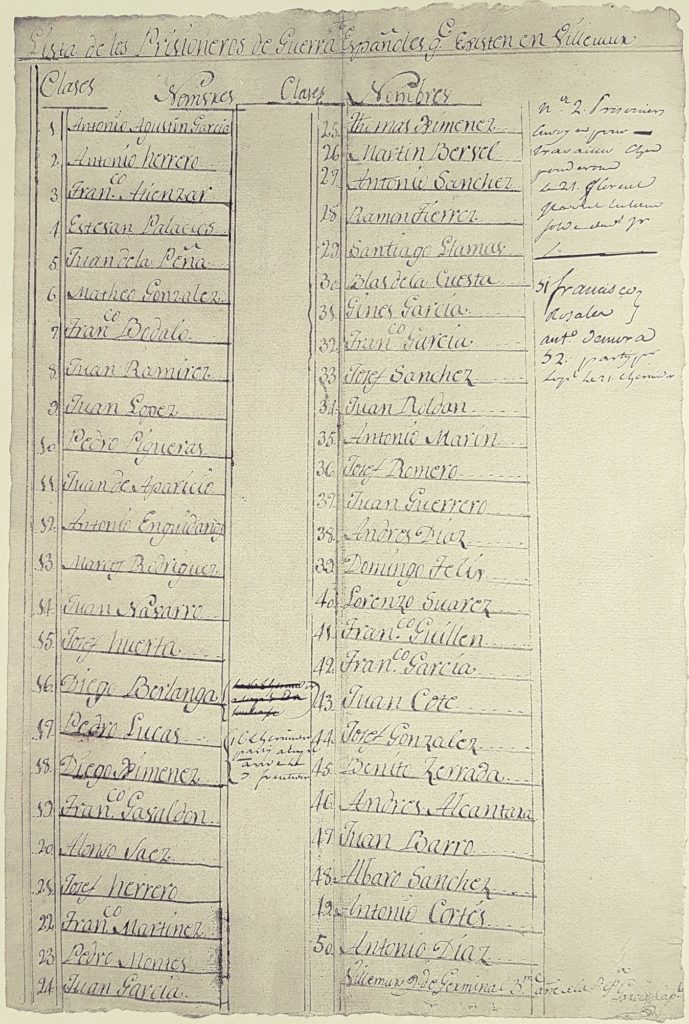 Lista de los Prisioneros de Guerra Españoles qe Existen en Villemur
Clases Nombres Clases Nombres
1 Antonio Agustin Garcia
2. Antonio herrero
3 Fran.co Atienzar
4 Estevan Palacios
5 Juan de la Peña
6 Matheo Gonzalez
7 Fran.co Bodalo
8 Juan Ramirez
9 Juan Lopez
10 Pedro Pigueras
11 Juan de Aparicio
12 Antonio Enguidanos
13. Marcos Rodriguez
14 Juan Navarro
15 Josef huerta
16 Diego Berlanga
17 Pedro Lucas
18. Diego Ximenez
19 Fran.co Gavaldon
20 Alonso Saez
21 Josef herrero
22 Fran.co Martinez
23 Pedro Montes
24 Juan Garcia
25. Thomas Ximenez
26 Martin Bersel
27 Antonio Sanchez
28 Ramon Tierrez
29 Santiago Llamas
30 Blas de la Cuesta
31 Gines Garcia
32 Fran.co Garcia
33 Josef Sanchez
34 Juan Roldan
35 Antonio Marin
36 Josef Romero
37 Juan Guerrero
38 Andres Diaz
39 Domingo Felix
40 Lorenzo Suarez
41 Fran.co Guillen
42 Fran.co Garcia
43 Juan Cote
44 Josef Gonzalez
45 Benito Zerrada
46 Andres Alcantara
47 Juan Barro
48 Albaro Sanchez
49 Antonio Cortés
50 Antonio Diaz
Villemur 2 de Germinal 3
n. 2. Prisoniers
pour
travailler chez
le 21. floreal
51 francisco
Rosales
52.